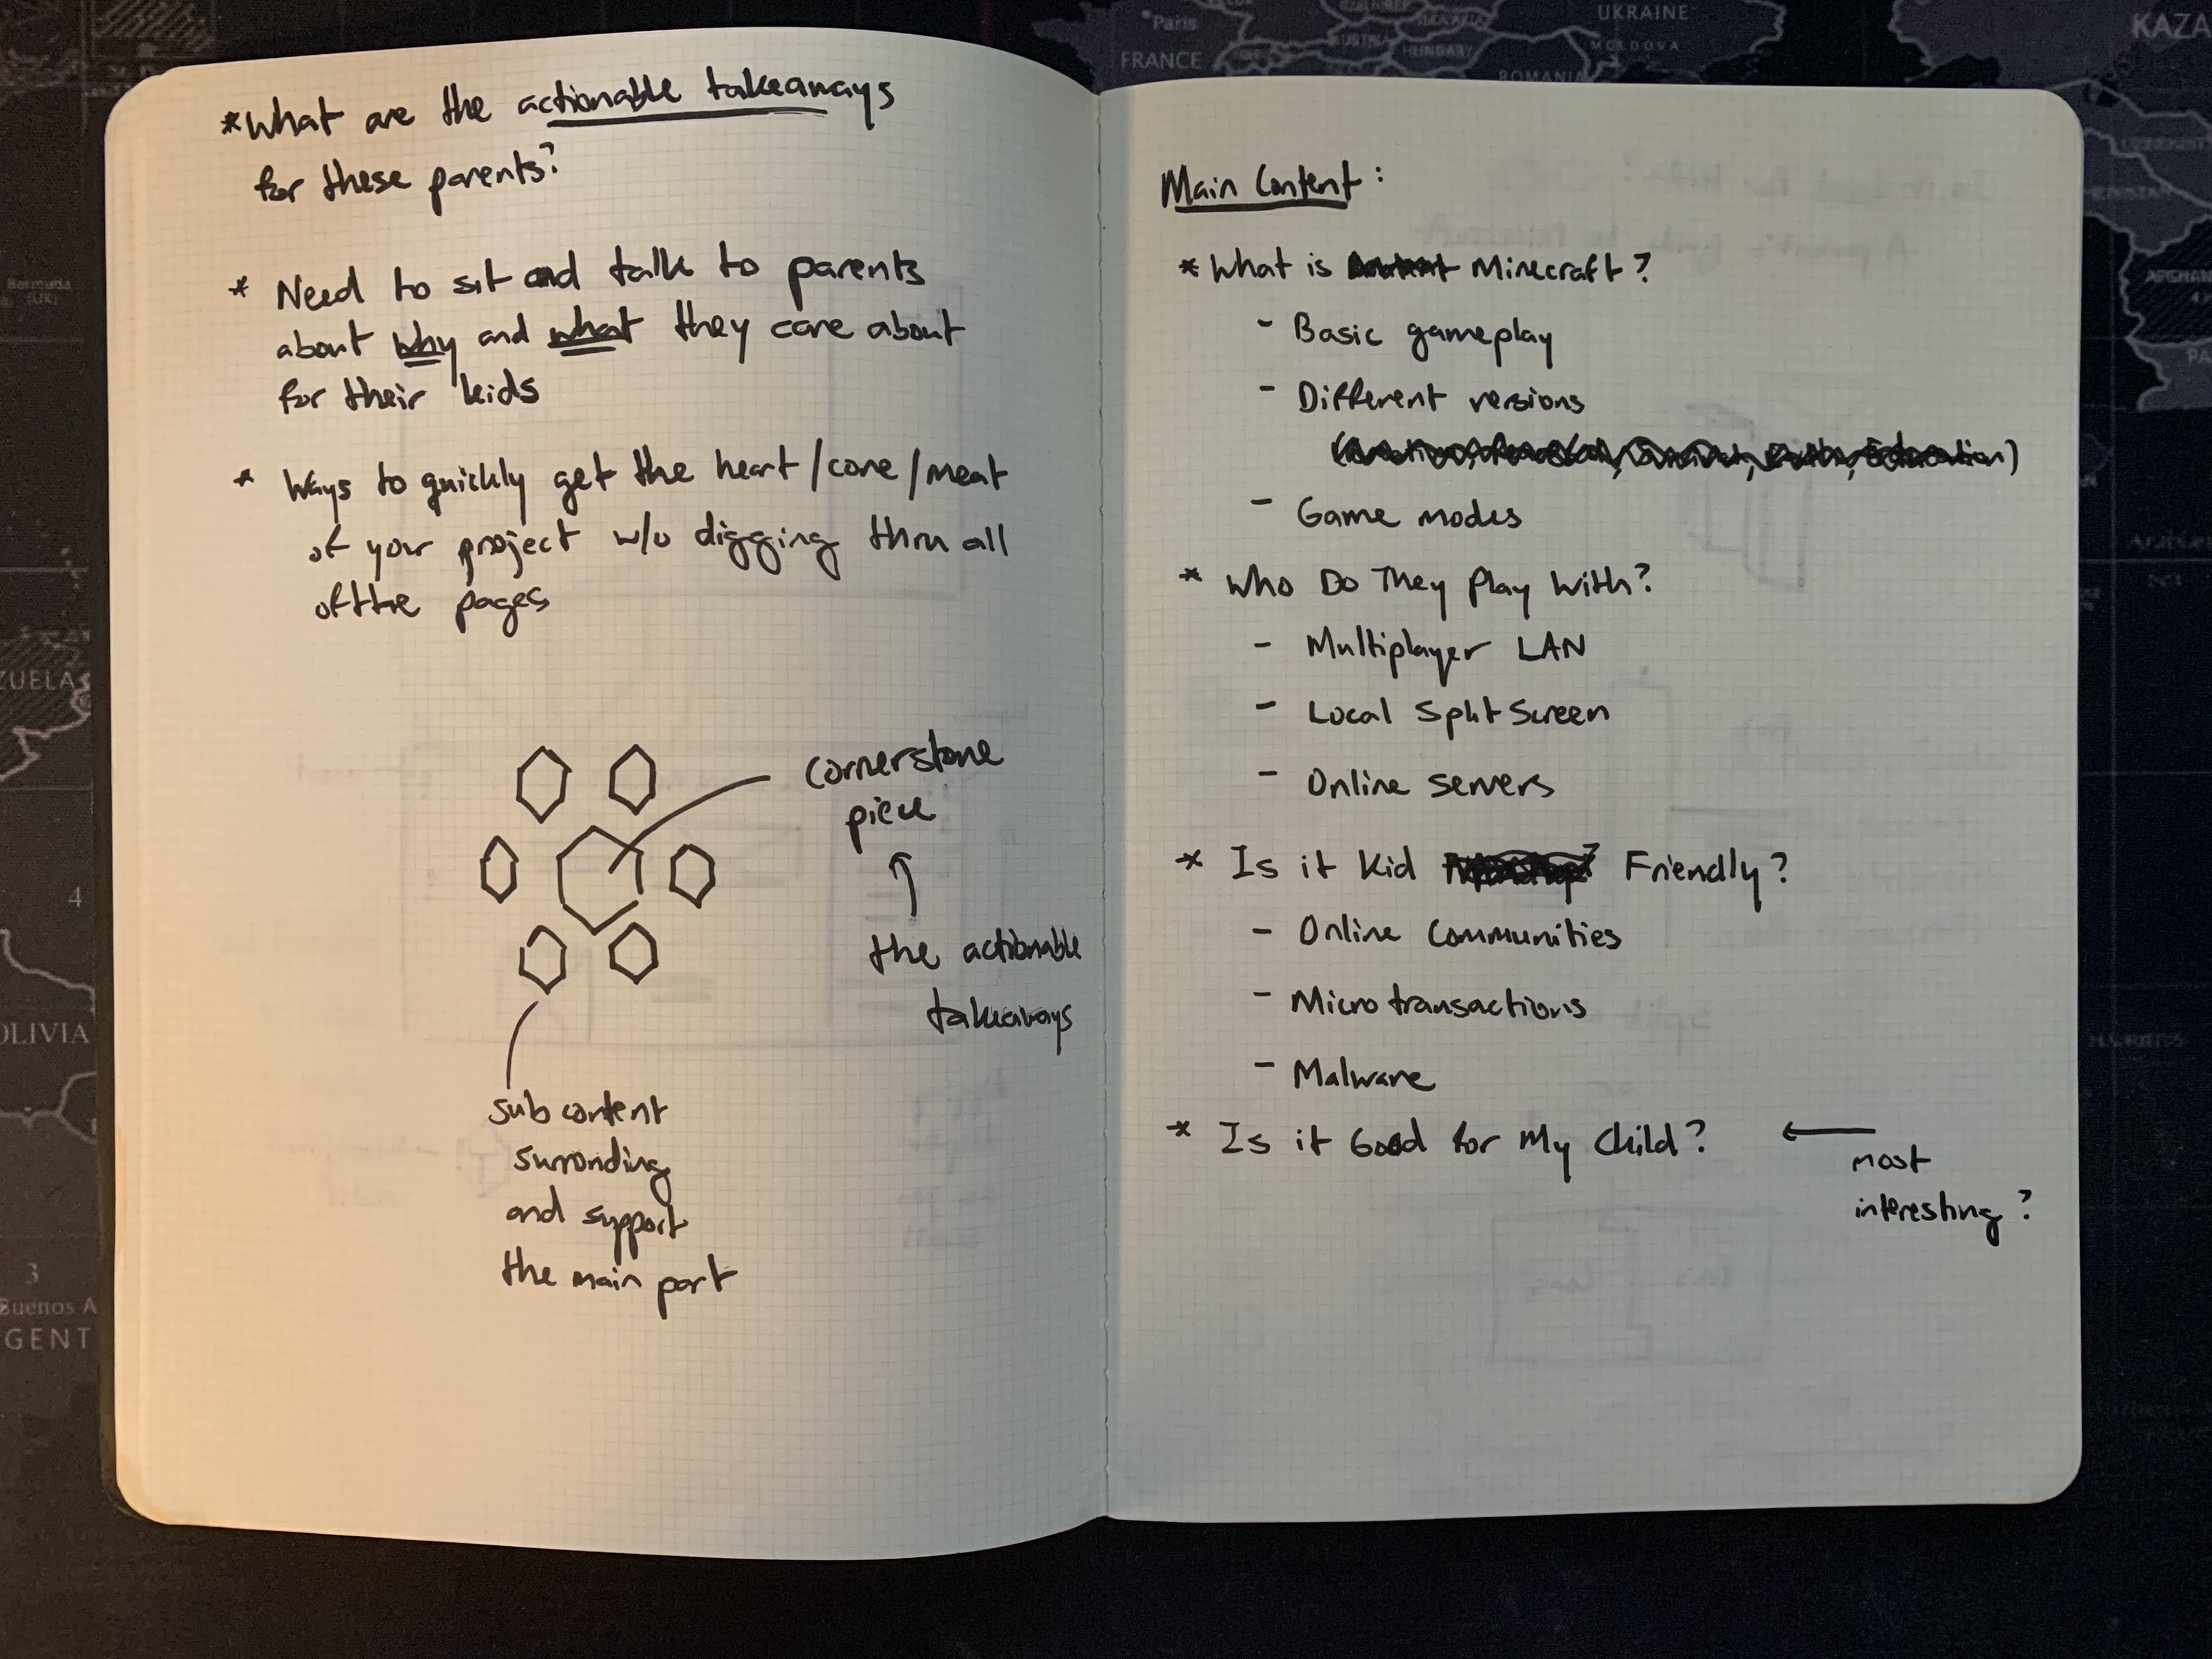 *What are the actionable takeaways
for these parents?
* Need to sit and talk to parents
about why and what they care about
for their kids
* Ways to quickly get the heart/core/meat
of your project w/o digging thru all
of the pages
cornerstone
piece
the actionable
takeaways
sub content
surronding
and support
the main part
Main Content:
* What is Minecraft?
- Basic gameplay
- Different versions
- Game modes
* Who Do They Play With?
- Multiplayer LAN
- Local Split Screen
- Online servers
* Is it Kid Friendly?
- Online Communities
- Micro transactions
- Malware
* Is it Good for My Child? ←
most
interesting?
Paris
FRANCE
AUSTRIA
HUNGARY
UKRAINE
MOLDOVA
ROMANIA
KAZA
AFGHAN
PA
Bermuda
(UK)
ZUELA
4
OLIVIA
3
Buenos A
GENT